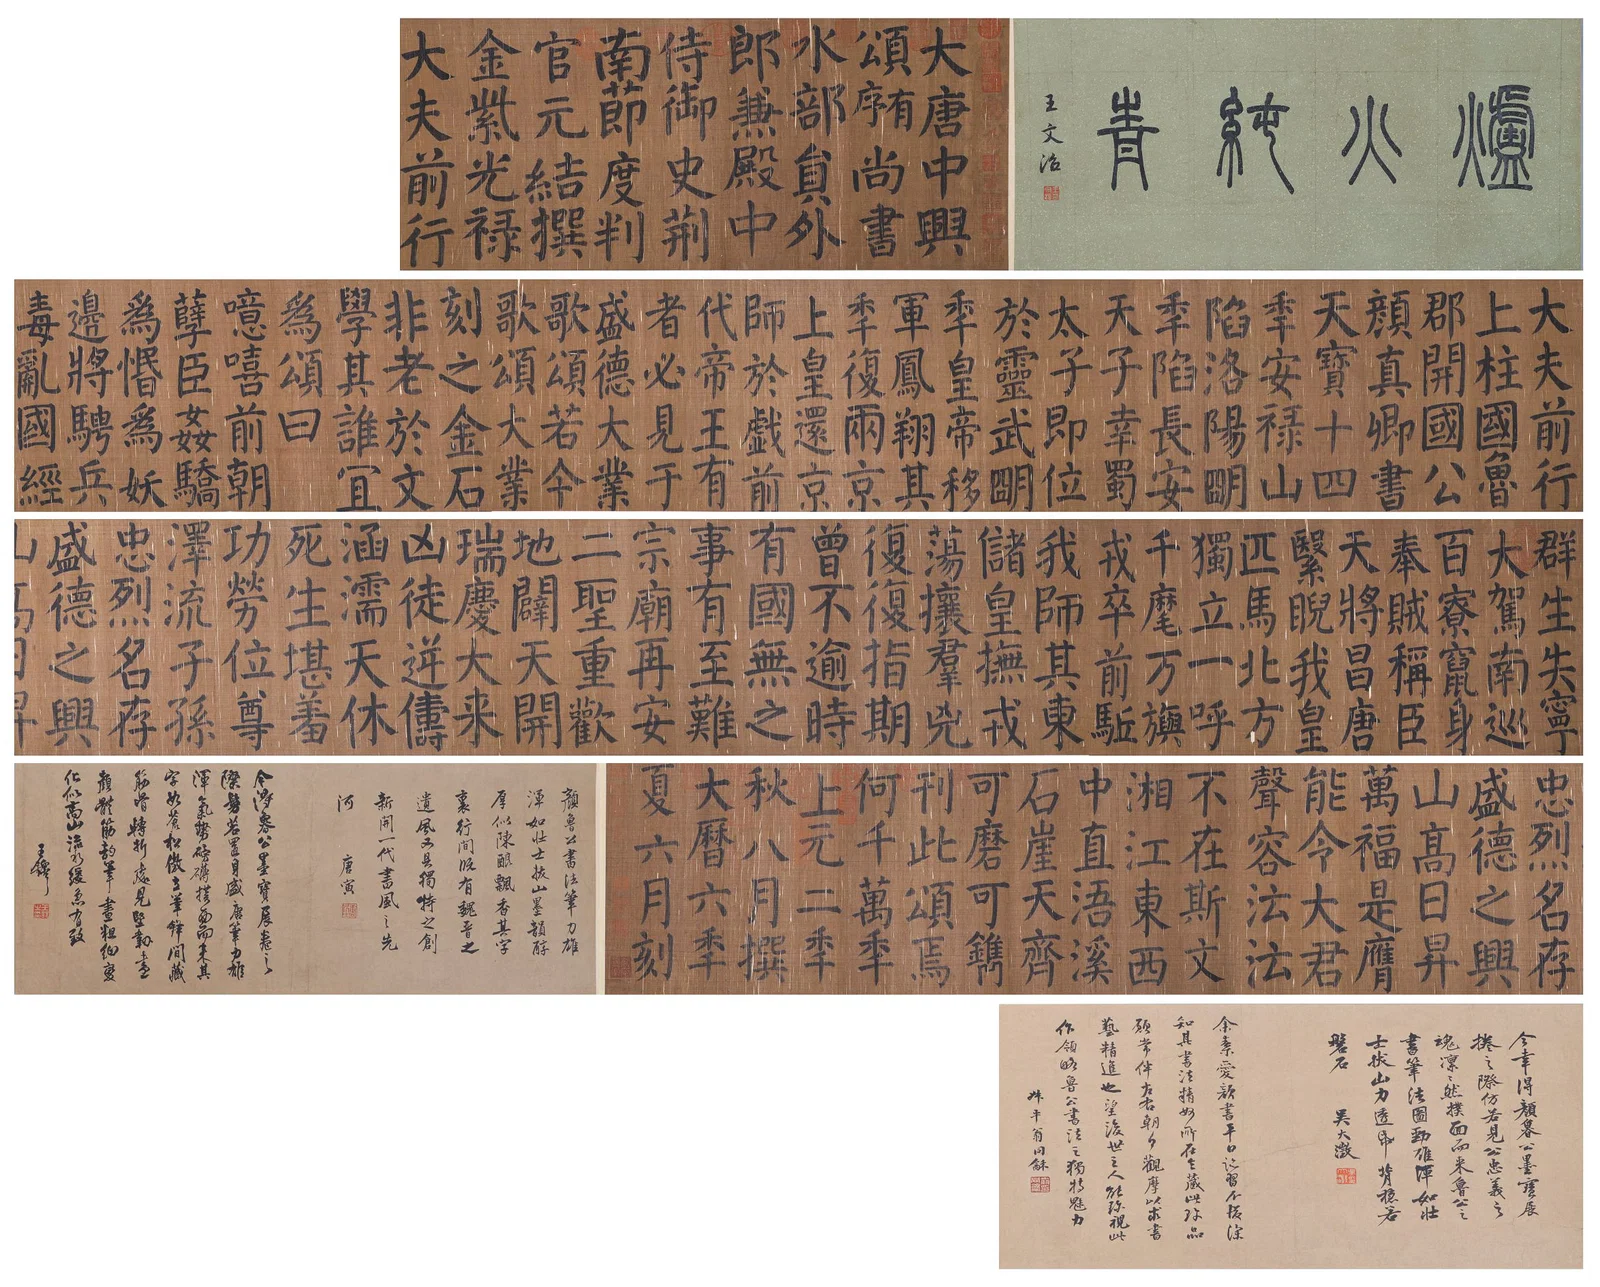 爐火純青
王文治
大唐中興
頌有序尚書
水部員外
郎兼殿中
侍御史荊
南節度判
官元結撰
金紫光祿
大夫前行
大夫前行
上柱國魯
郡開國公
顏真卿書
天寶十四
秊安祿山
陷洛陽朙
秊陷長安
天子幸蜀
太子即位
於靈武朙
秊皇帝移
軍鳳翔其
秊復兩京
上皇還京
師於戲前
代帝王有
者必見于
盛德大業
歌頌若今
歌頌大業
刻之金石
非老於文
學其誰宜
爲頌曰
噫嘻前朝
孽臣姦驕
爲惛爲妖
邊將騁兵
毒亂國經
群生失寧
大駕南巡
百寮竄身
奉賊稱臣
天將昌唐
繄睨我皇
匹馬北方
獨立一呼
千麾万旟
戎卒前駈
我師其東
儲皇撫戎
蕩攘羣兇
復復指期
曾不逾時
有國無之
事有至難
宗廟再安
二聖重歡
地闢天開
瑞慶大来
凶徒逆儔
涵濡天休
死生堪羞
功勞位尊
澤流子孫
忠烈名存
盛德之興
山高日昇
忠烈名存
盛德之興
山高日昇
萬福是膺
能令大君
聲容法法
不在斯文
湘江東西
中直浯溪
石崖天齊
可磨可鐫
刊此頌焉
何千萬秊
上元二秊
秋八月撰
大曆六秊
夏六月刻
顏魯公書法筆力雄
渾如壯士拔山墨韻醇
厚似陳釀飄香其字
裏行間既有魏晉之
遺風又具獨特之創
新開一代書風之先
河 唐寅
今得魯公墨寶展卷之
際髣若置身盛唐筆力雄
渾氣勢磅礴撲面而来其
字如蒼松傲立筆鋒間藏
筋骨轉折處見堅韌
顏體筋韵筆畫粗細變
化似高山流水緩急有致
王鐸
今幸得顏魯公墨寶展
捲之際仿若見公忠義之
魂凜凜然撲面而来魯公之
書筆法圓勁雄渾如壯
士拔山力透帋背穩若
磐石 吳大澂
余素愛顏書平日臨習不輟深
知其書法精妙所在今藏此珍品
願常伴左右朝夕觀摩以求書
藝精進也望後世之人能珍視此
作領略魯公書法之獨特魅力
叔平翁同龢